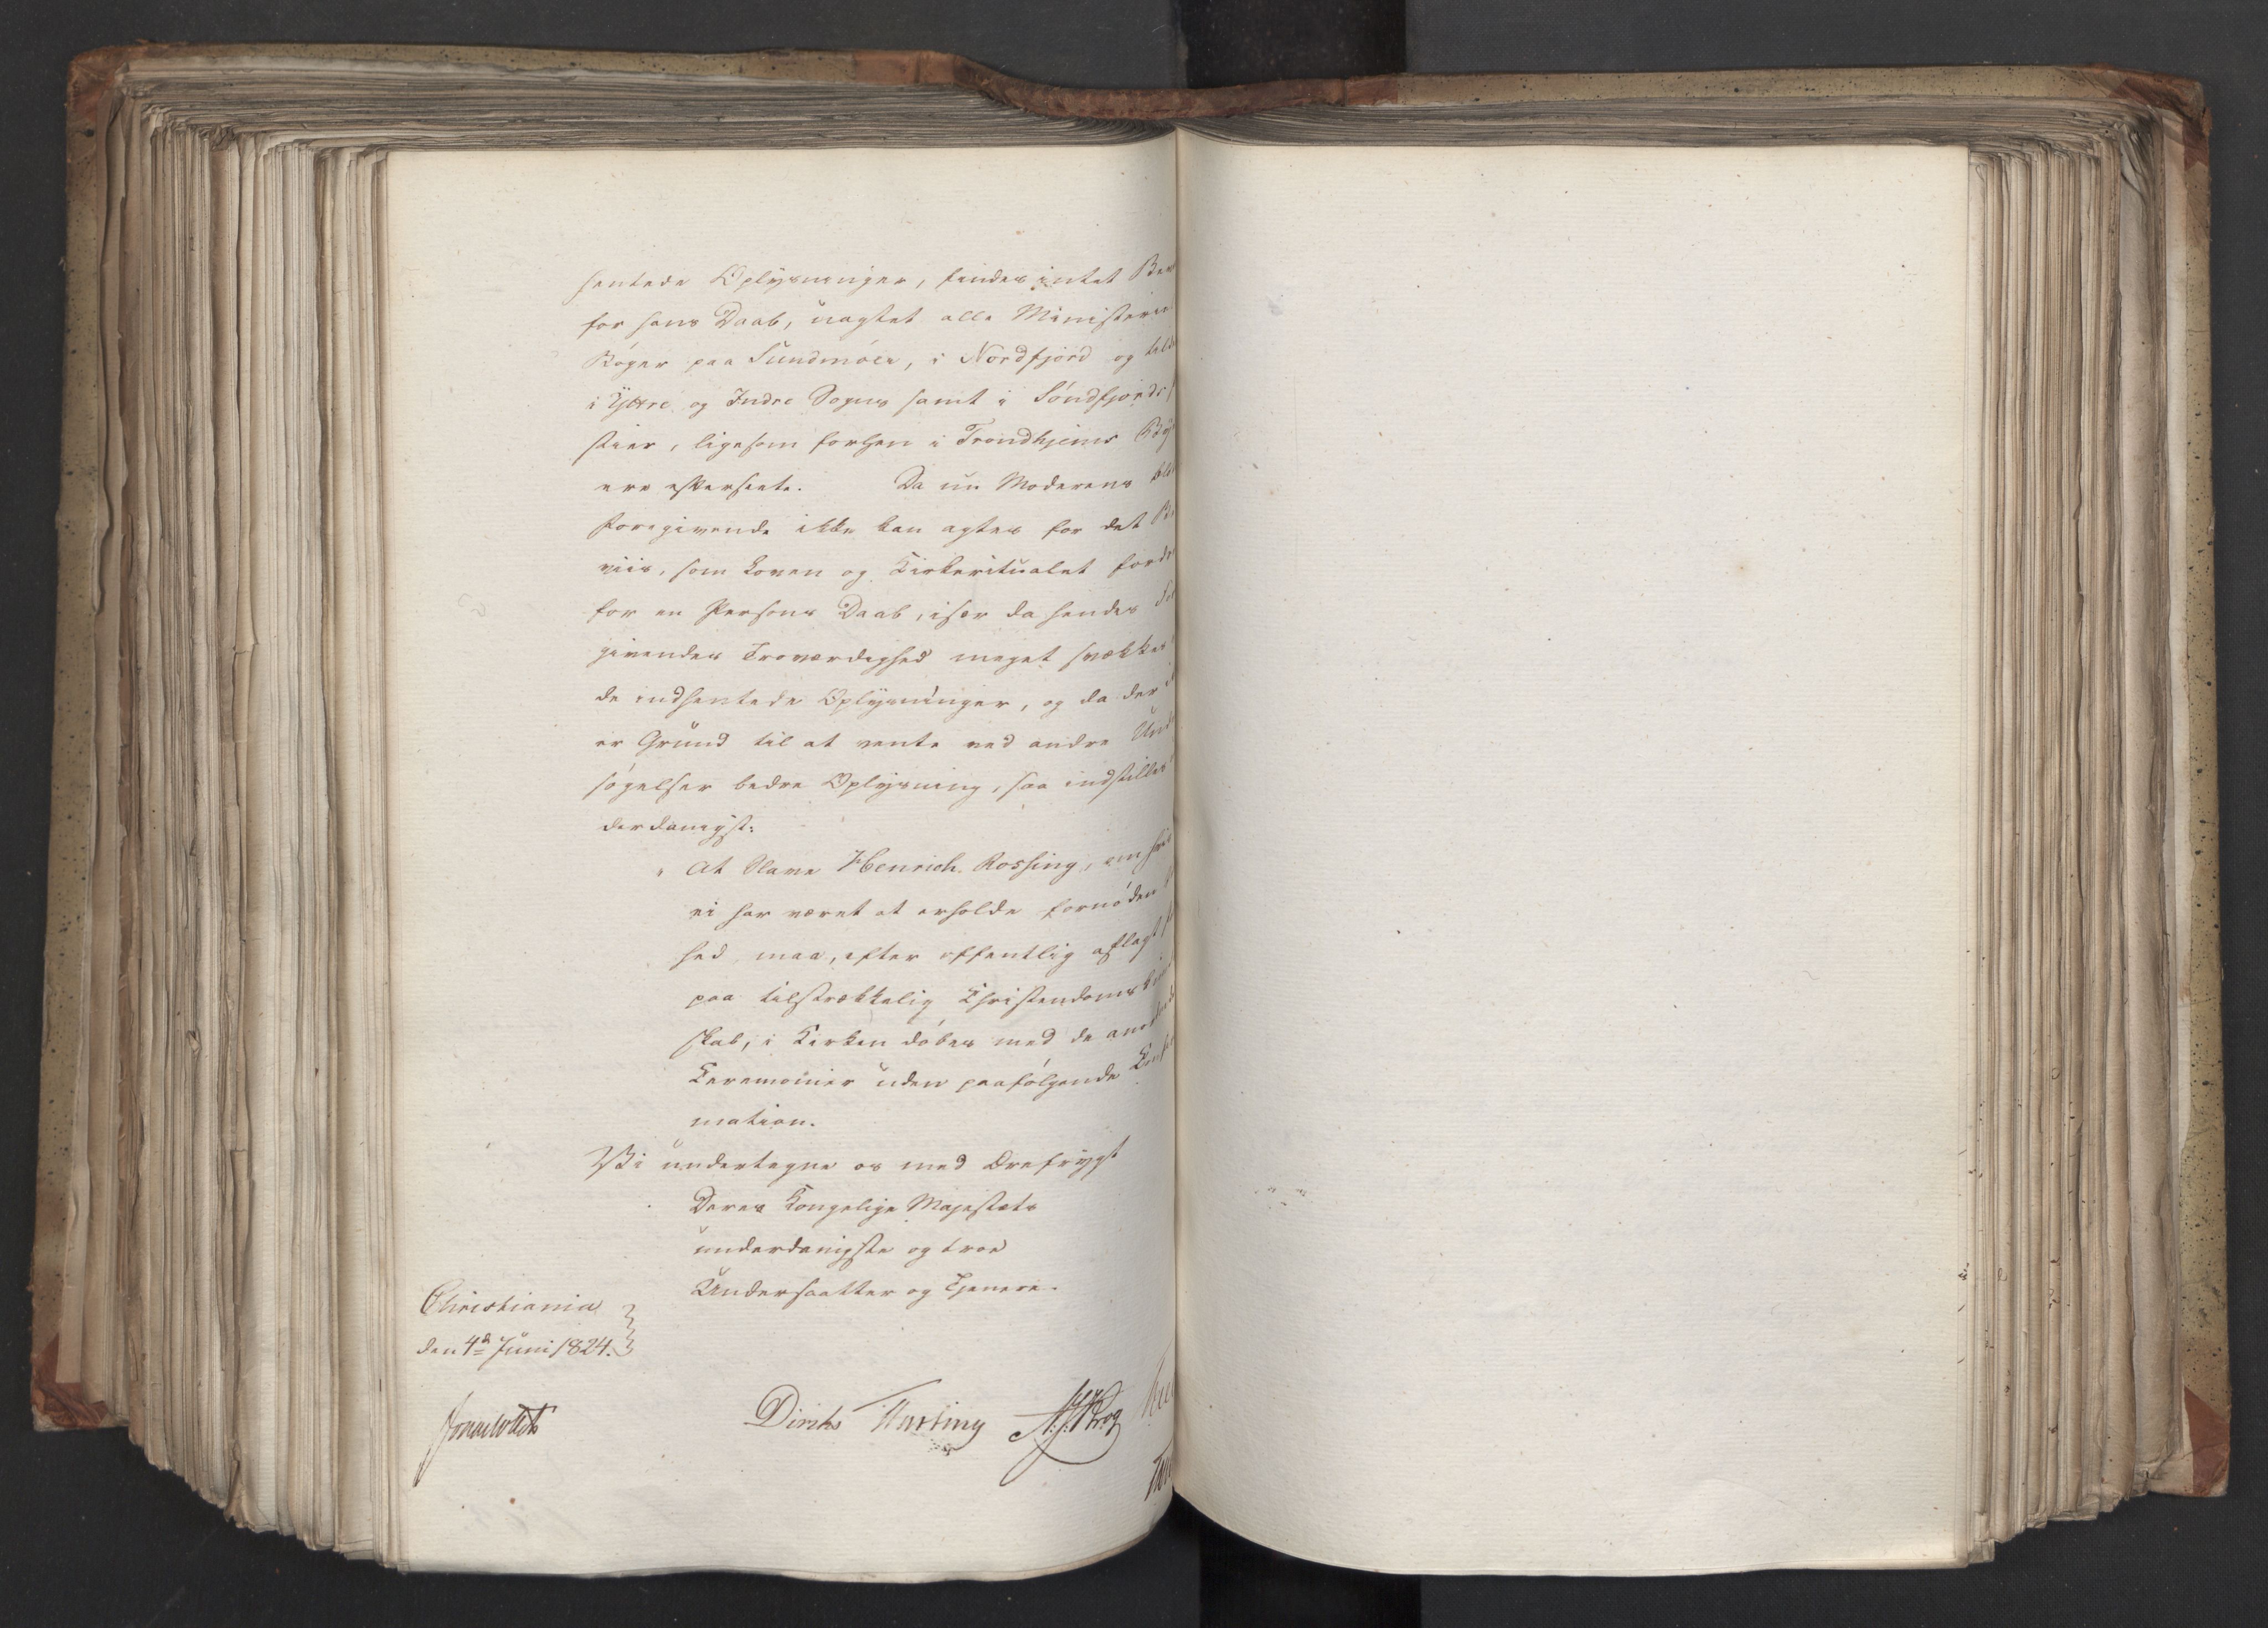 hentede Oplysninger, findes intet
for hans Daab, uagtet alle Ministerial
Bøger paa Sundmøer, i Nordfjord og
i Yttre og Indre Sogns samt i Søndfjords
stier, ligesom forhen i Trondhjems
ere efterseete. Da nu Moderens
foregivende ikke kan agtes for det Be
viis, som Loven og Kirkeritualet fordre
for en Persons Daab, især da hendes
givendes Troværdighed meget svækkes
de indhentede Oplysninger, og da der
er Grund til at vente ved andre Und
søgelser bedre Oplysning, saa indstilles
derdanigst:
" At Slave Henrich Rossing, om
ei har været at erholde fornøden
hed, maa, efter offentlig aflagt
paa tilstrækkelig Christendoms
skab, i Kirken døbes med de
Ceremonier uden paafølgende Confir
mation.
Vi undertegne os med Ærefrygt
Deres Kongelige Majestæts
underdanigste og troe
Undersaatter og Tjenere.
Christiania
den 4de Juni 1824.
Sommerhielm
Diriks Motzfeldt